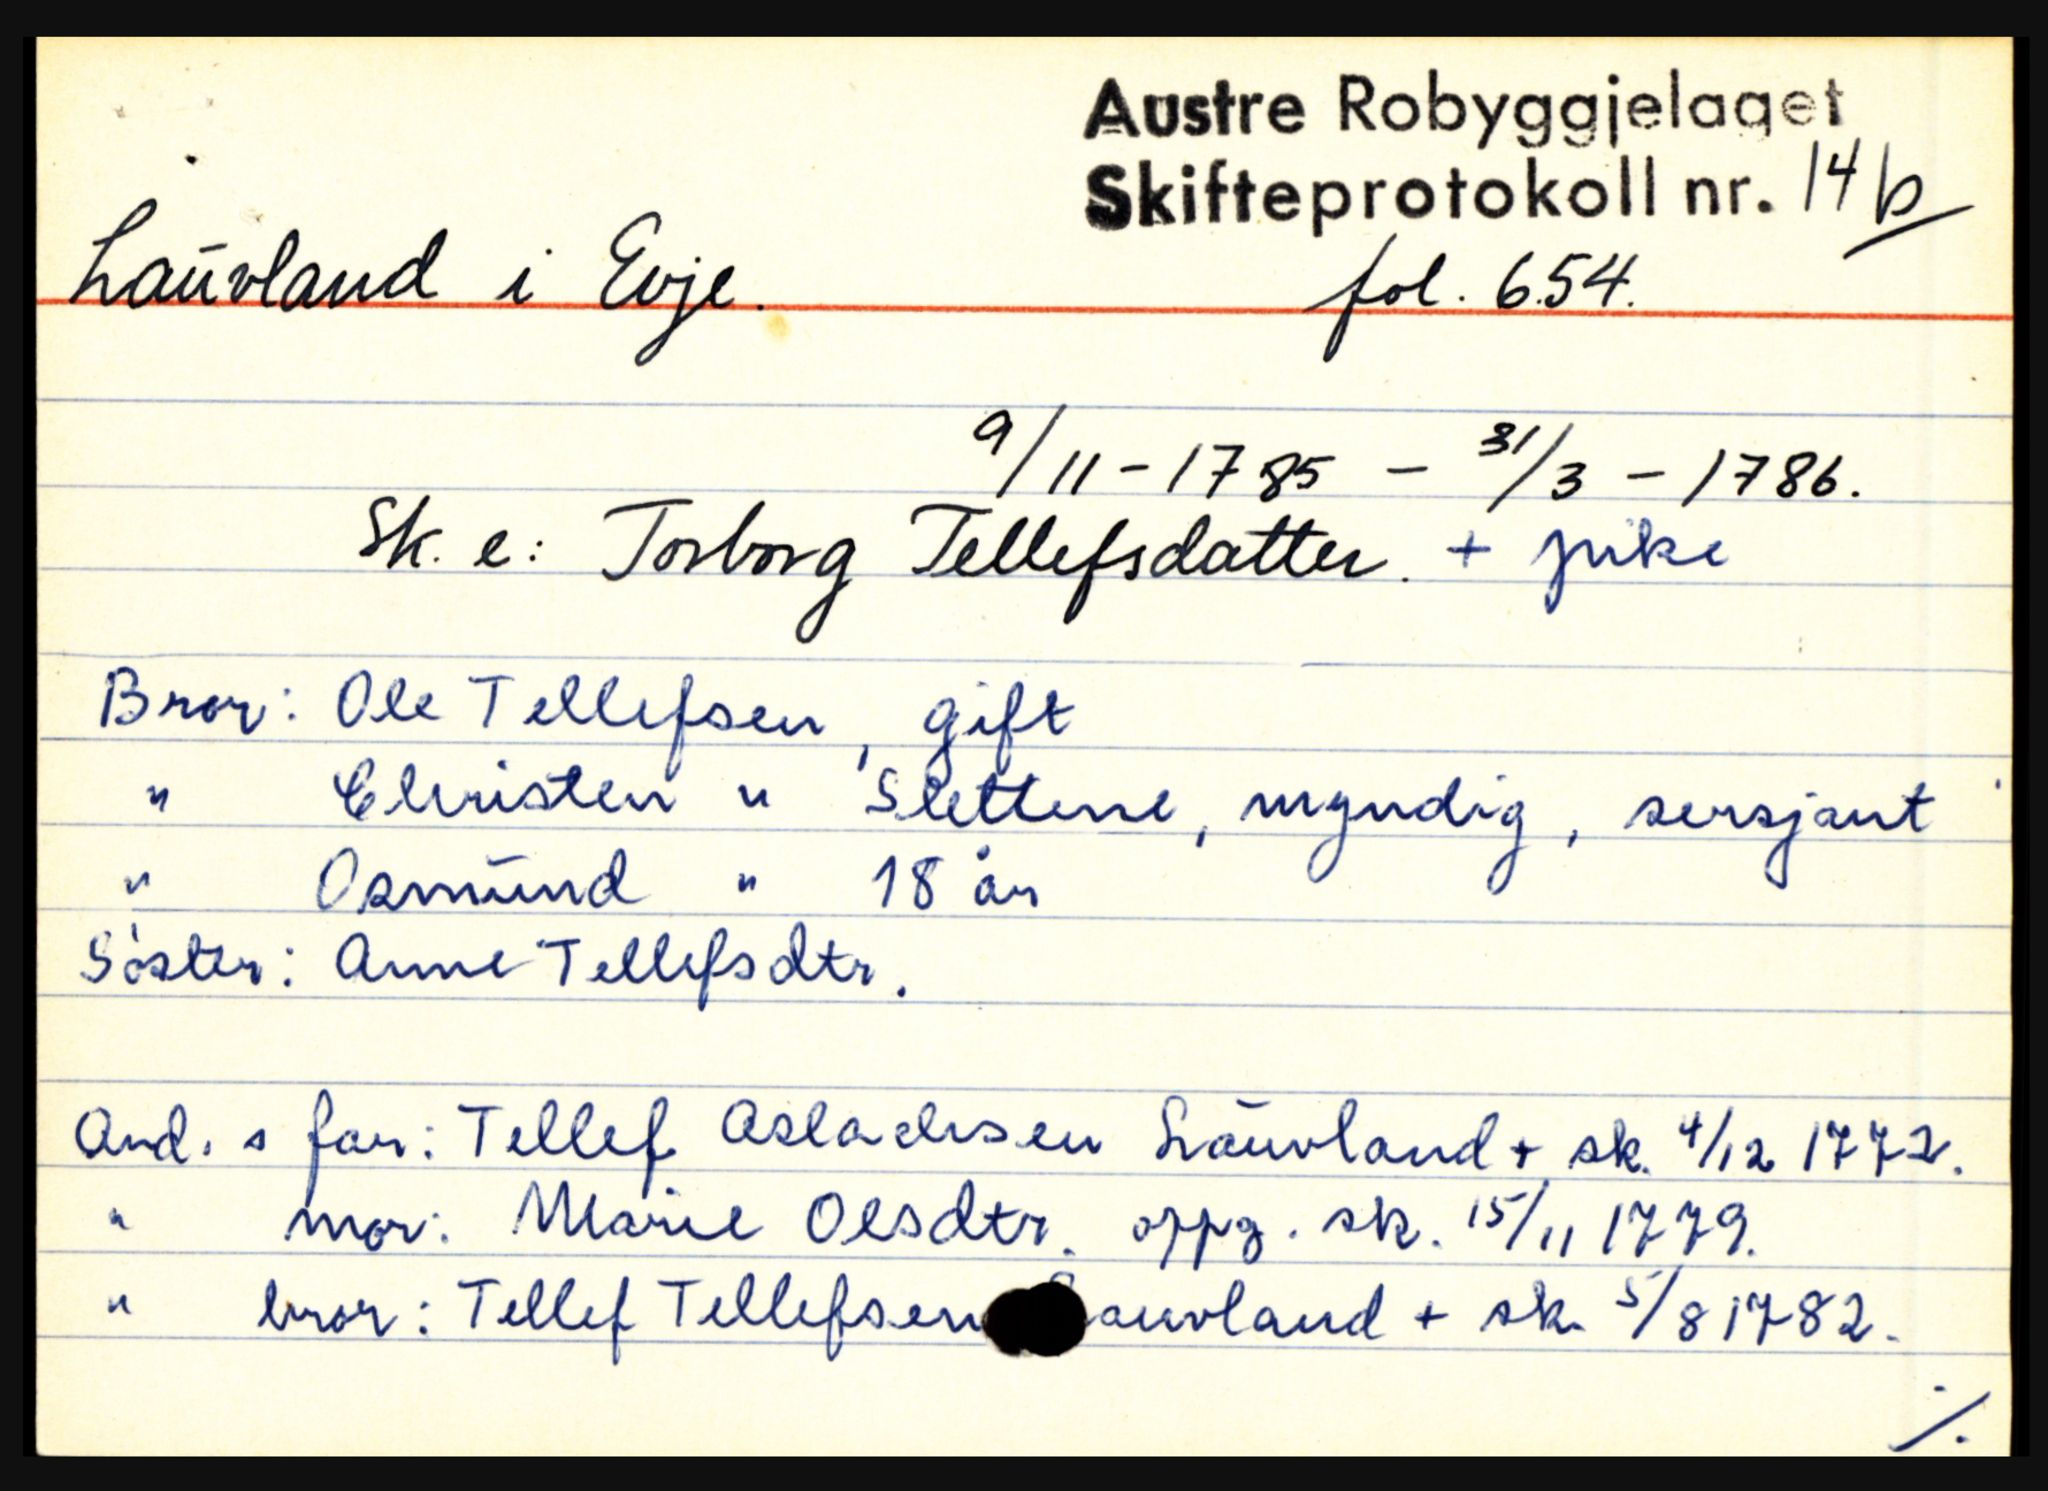 Austre Robyggjelaget
Skifteprotokoll nr. 14b
Lauvland i Evje. fol. 654.
9/11 - 1785 - 31/3 - 1786.
Sk. e: Torborg Tellefsdatter. + pike
Bror: Ole Tellefsen, gift
" Christen " Slettene, myndig, sersjant
" Osmund " 18 år
Söster: Anne Tellefsdtr.
Avd. s far: Tellef Aslachsen Lauvland + sk. 4/12 1772.
" mor: Marie Olsdtr. oppg. sk. 15/11 1779.
" bror: Tellef Tellefsen Lauvland + sk. 5/8 1782.
./.